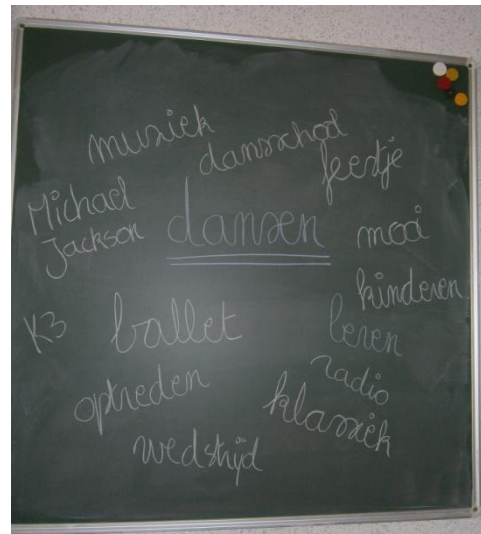 muziek
dansschool
feestje
Michael
Jackson
dansen
mooi
kinderen
K3
ballet
leren
radio
optreden
klassiek
wedstrijd